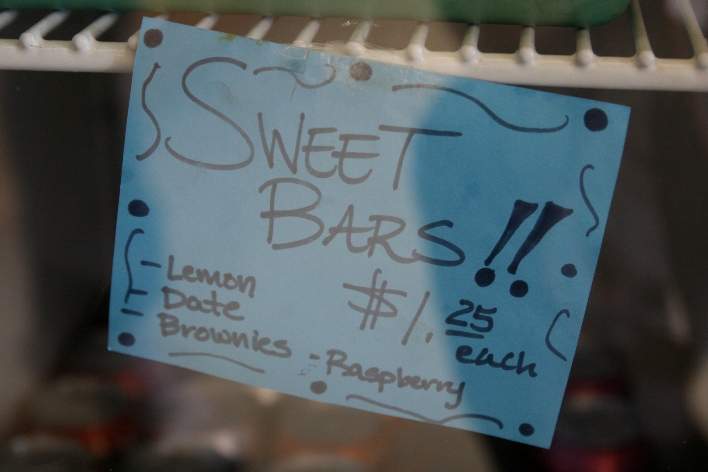 SWEET
BARS!!
- Lemon
- Date
Brownies
- Raspberry
$1.25
each